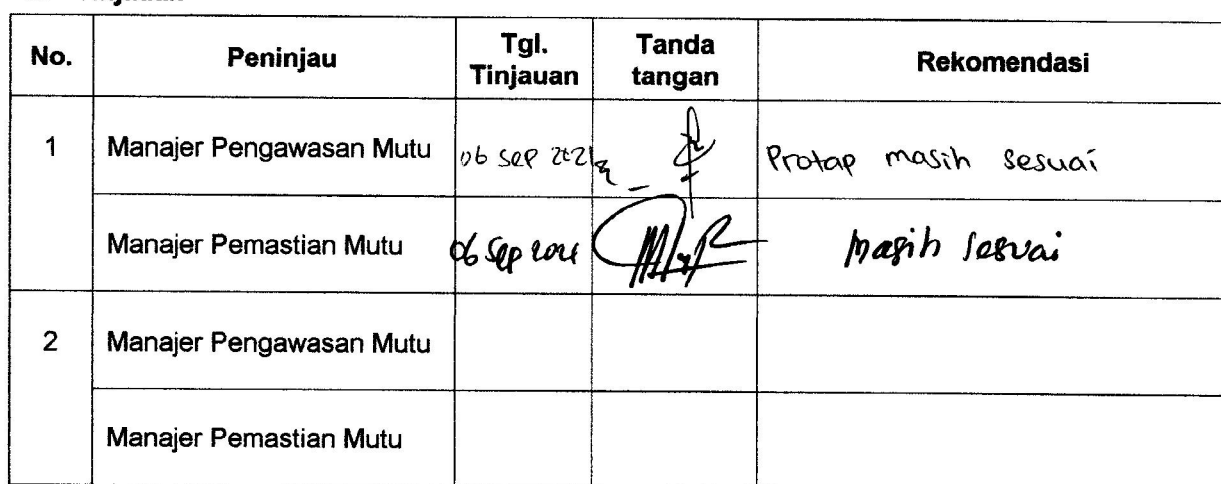 No. Peninjau Tgl. Tinjauan Tanda tangan Rekomendasi
1 Manajer Pengawasan Mutu 06 sep Protap masih sesuai
Manajer Pemastian Mutu 06 Sep masih sesuai
2 Manajer Pengawasan Mutu
Manajer Pemastian Mutu